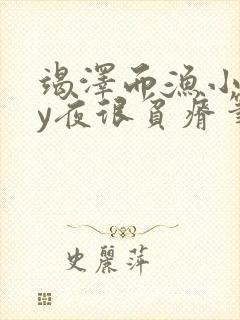 竭澤而漁小
y夜珢負瘠筆
史麗萍